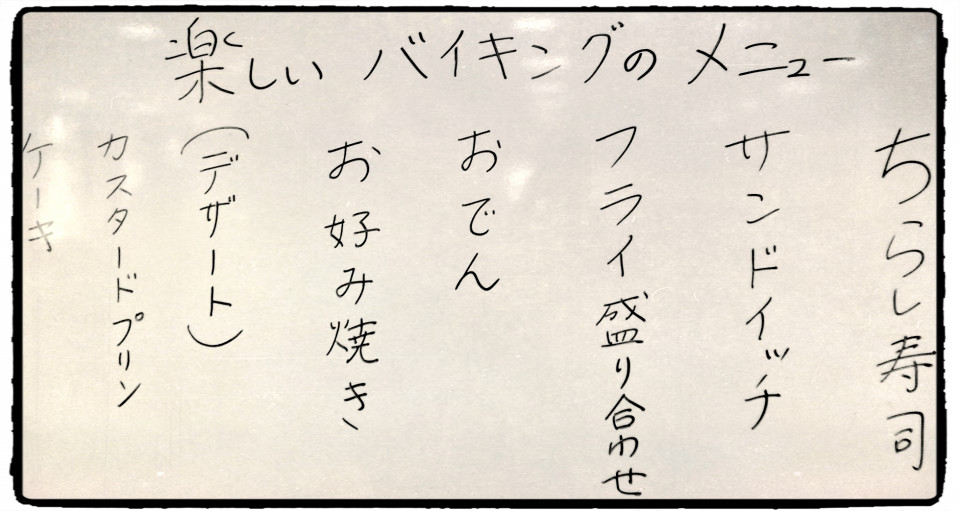 楽しいバイキングのメニュー
ちらし寿司
サンドイッチ
フライ盛り合わせ
おでん
お好み焼き
(デザート)
カスタードプリン
ケーキ